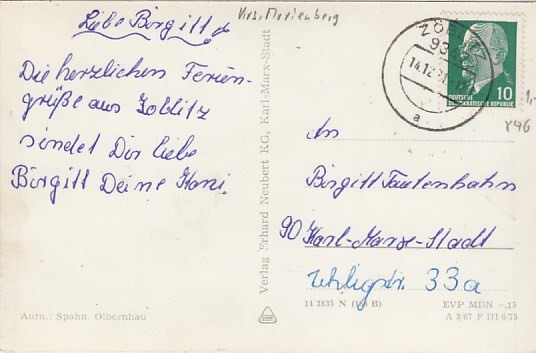 Krs. Marienberg
Liebe Birgitt
Die herzlichen Ferien-
grüße aus Zöblitz
sendet Dir liebe
Birgitt Deine Koni.
Aufn.: Spahn, Olbernhau
Verlag Erhard Neubert KG, Karl-Marx-Stadt
ZÖBLITZ
93
14.12
a
10
DEUTSCHE
DEMOKRATISCHE REPUBLIK
846
An
Birgitt Tautenhahn
90 Karl-Marx-Stadt
Uhligstr. 33a
14 3835 N
EVP MDN -,15
A 3/67 F III 6/75